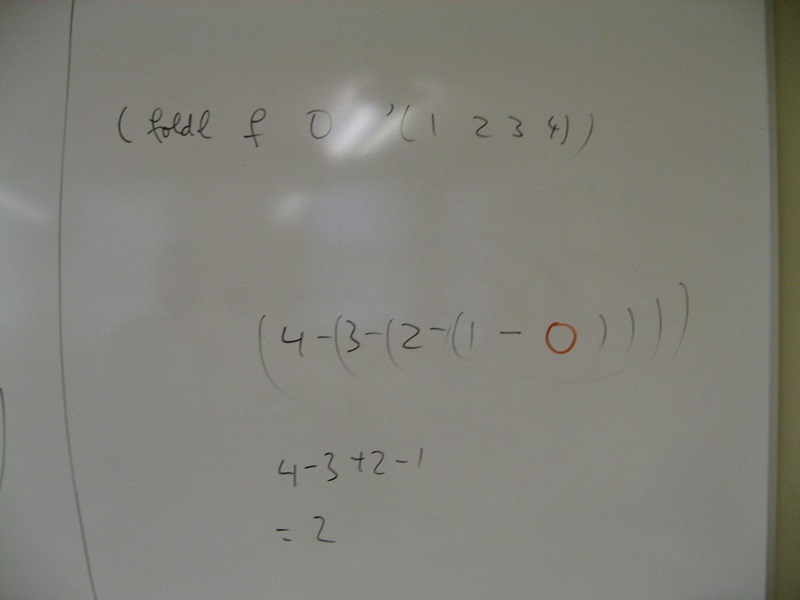 (foldl f 0 '(1 2 3 4))
(4-(3-(2-(1-0))))
4-3+2-1
=2